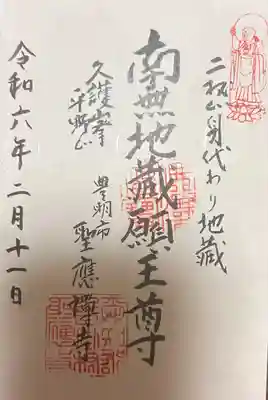 二村山身代わり地蔵
南無地蔵願主尊
豊明市
聖應禅寺
久護峯
平野山
令和六年二月十一日